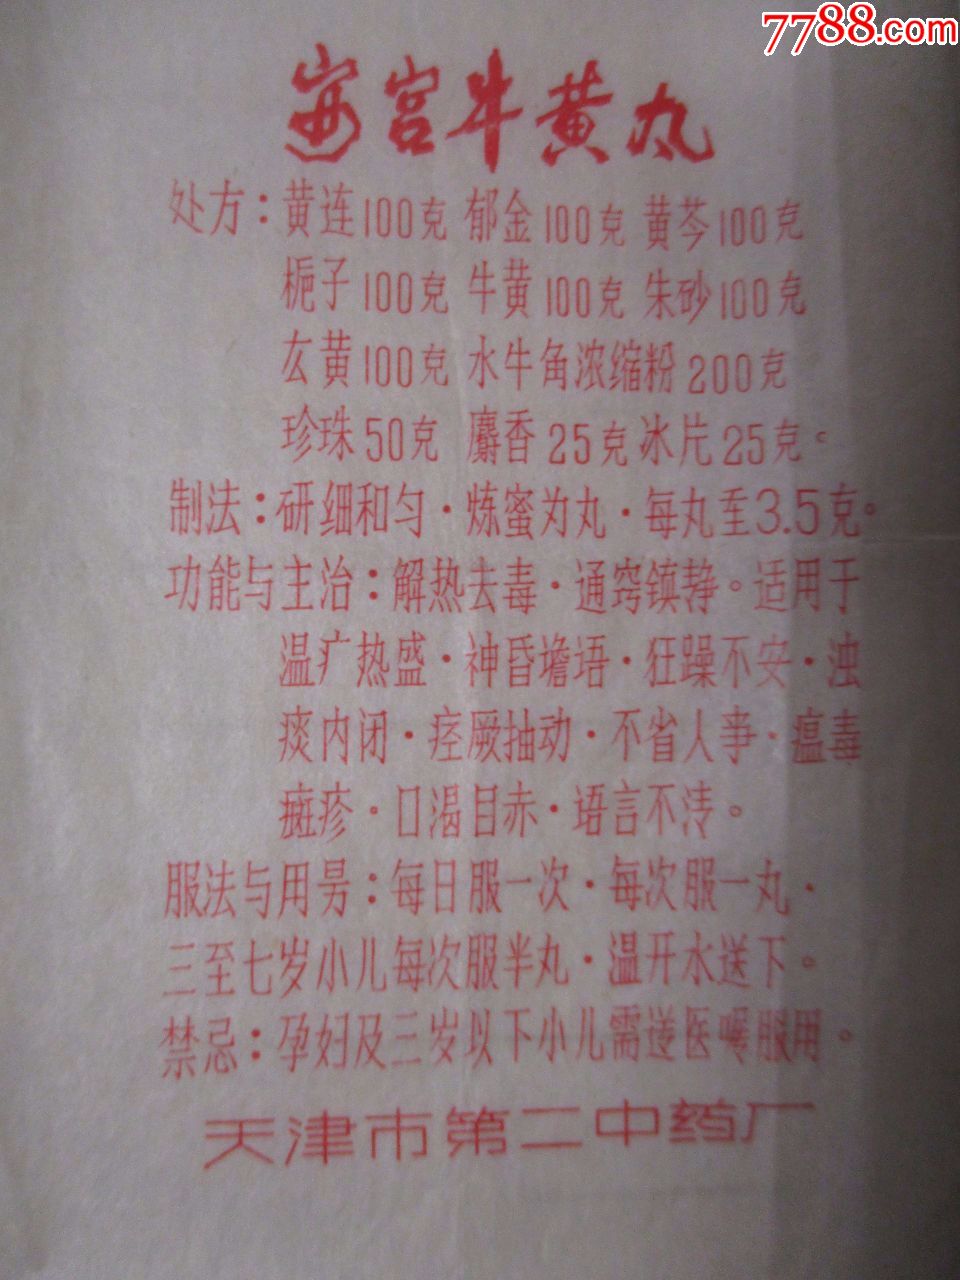 7788.com
安宫牛黄丸
处方：黄连100克 郁金100克 黄芩100克
栀子100克 牛黄100克 朱砂100克
玄黄100克 水牛角浓缩粉200克
珍珠50克 麝香25克 冰片25克。
制法：研细和匀·炼蜜为丸·每丸至3.5克。
功能与主治：解热去毒·通窍镇静。适用于
温疒热盛·神昏谵语·狂躁不安·浊
痰内闭·痉厥抽动·不省人事·瘟毒
癍疹·口渴目赤·语言不清。
服法与用男：每日服一次·每次服一丸·
三至七岁小儿每次服半丸·温开水送下。
禁忌：孕妇及三岁以下小儿需送医嘱服用。
天津市第二中药厂